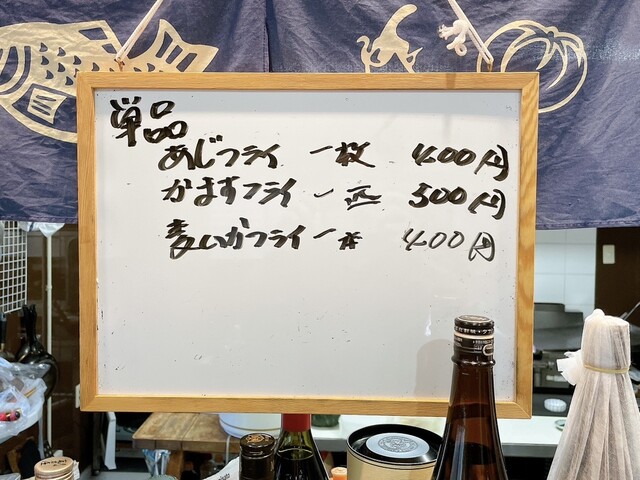 単品
あじフライ 一枚 400円
かますフライ 一匹 500円
麦いかフライ 一本 400円